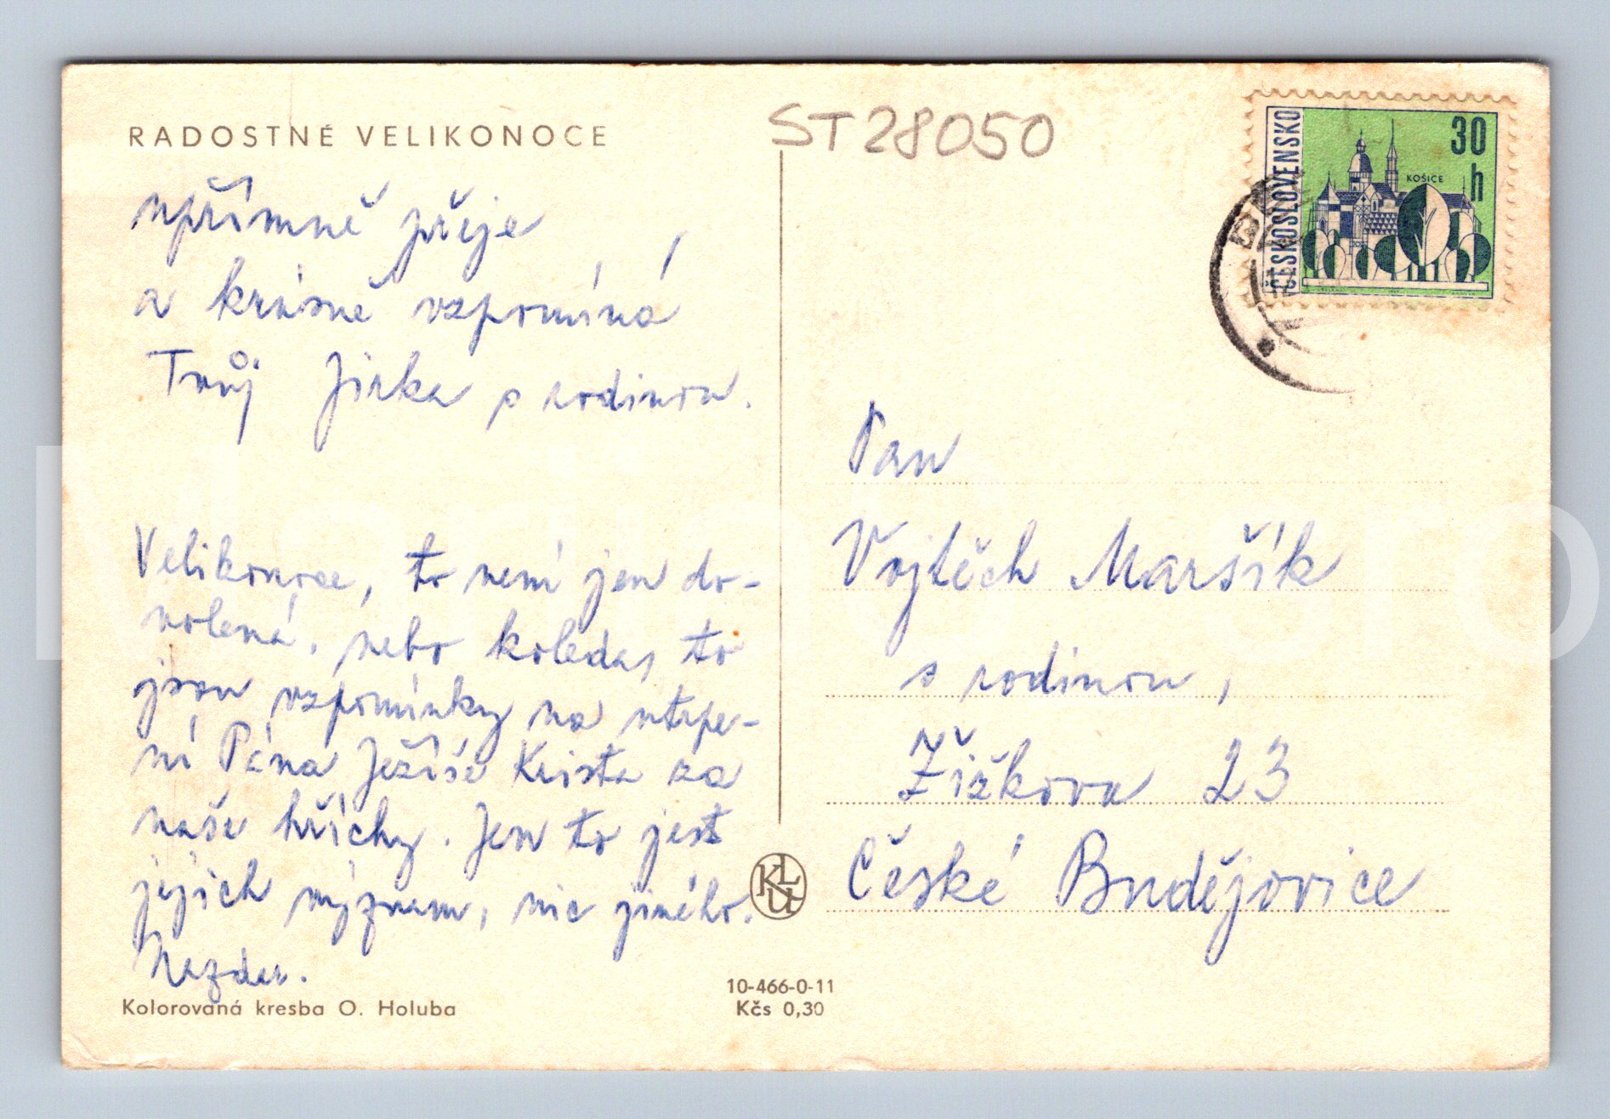 RADOSTNÉ VELIKONOCE
upřímně přeje
a krásně vzpomíná
Tvůj Jirka s rodinou.
Velikonoce, to není jen do-
volená, nebo koledas, to
jsou vzpomínky na utrpe-
ní Pána Ježíše Krista za
naše hříchy. Jen to jest
jejich význam, nic jiného.
Nazdar.
Kolorovaná kresba O. Holuba
10-466-0-11
Kčs 0,30
KLU
ST28050
ČESKOSLOVENSKO
30 h
KOŠICE
Pan
Vojtěch Maršík
s rodinou,
Žižkova 23
České Budějovice